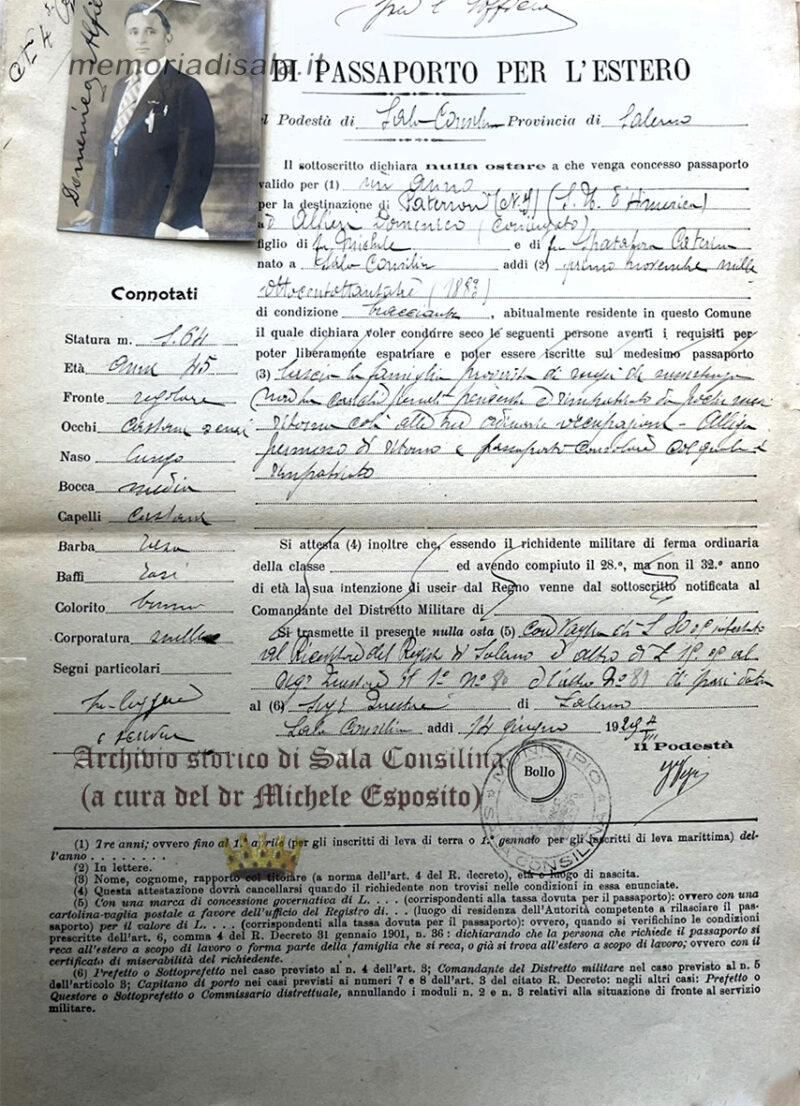 per l'
memoriadisala.it
Domenico Alfieri
DI PASSAPORTO PER L'ESTERO
l Podestà di Sala Consilina Provincia di Salerno
Il sottoscritto dichiara nulla ostare a che venga concesso passaporto
valido per (1) un anno
per la destinazione di Paterson (N.J) (S. U. d'America)
Alfieri Domenico (coniugato)
figlio di fu Michele e di fu Spatafora Caterina
nato a Sala Consilina addì (2) primo novembre mille
ottocentottantatre (1883)
di condizione bracciante, abitualmente residente in questo Comune
il quale dichiara voler condurre seco le seguenti persone aventi i requisiti per
poter liberamente espatriare e poter essere iscritte sul medesimo passaporto
(3) lascia la famiglia provvista di mezzi di
rimpatriato da pochi mesi
ritorna colà alle sue ordinarie occupazioni - Alliga
permesso di ritorno e passaporto consolare col quale è
rimpatriato
Connotati
Statura m. 1.64
Età anni 45
Fronte regolare
Occhi castani scuri
Naso lungo
Bocca media
Capelli castani
Barba rasa
Baffi rasi
Colorito bruno
Corporatura snella
Segni particolari
Si attesta (4) inoltre che, essendo il richidente militare di ferma ordinaria
della classe ed avendo compiuto il 28.º, ma non il 32.º anno
di età la sua intenzione di uscir dal Regno venne dal sottoscritto notificata al
Comandante del Distretto Militare di
Si trasmette il presente nulla osta (5) con vaglia di L 80
al Ricevitore del Registro di Salerno e altro di L
Nº 80 Nº 81 di pari data
al (6) Sig. Questore di Salerno
Sala Consilina addì 14 giugno 1929
Il Podestà
Bollo
MUNICIPIO
SALA CONSILINA
Archivio storico di Sala Consilina
(a cura del dr Michele Esposito)
(1) Tre anni; ovvero fino al 1.º aprile (per gli inscritti di leva di terra o 1.º gennaio per gli inscritti di leva marittima) del-
l'anno . . . . . . . .
(2) In lettere.
(3) Nome, cognome, rapporto col titolare (a norma dell'art. 4 del R. decreto), età e luogo di nascita.
(4) Questa attestazione dovrà cancellarsi quando il richiedente non trovisi nelle condizioni in essa enunciate.
(5) Con una marca di concessione governativa di L. . . . (corrispondenti alla tassa dovuta per il passaporto): ovvero con una
cartolina-vaglia postale a favore dell'ufficio del Registro di. . . (luogo di residenza dell'Autorità competente a rilasciare il pas-
saporto) per il valore di L. . . . (corrispondenti alla tassa dovuta per il passaporto): ovvero, quando si verifichino le condizioni
prescritte dell'art. 6, comma 4 del R. Decreto 31 gennaio 1901, n. 36 : dichiarando che la persona che richiede il passaporto si
reca all'estero a scopo di lavoro o forma parte della famiglia che si reca, o già si trova all'estero a scopo di lavoro; ovvero con il
certificato di miserabilità del richiedente.
(6) Prefetto o Sottoprefetto nel caso previsto al n. 4 dell'art. 3; Comandante del Distretto militare nel caso previsto al n. 5
dell'articolo 3; Capitano di porto nei casi previsti ai numeri 7 e 8 dell'art. 3 del citato R. Decreto: negli altri casi: Prefetto o
Questore o Sottoprefetto o Commissario distrettuale, annullando i moduli n. 2 e n. 3 relativi alla situazione di fronte al servizio
militare.